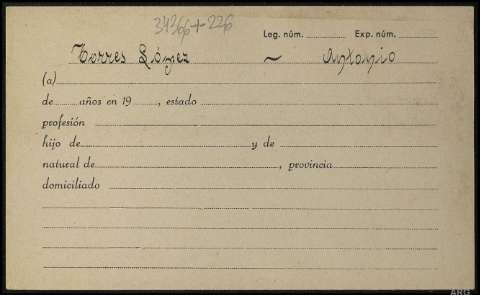 342/66+226
Leg. núm. Exp. núm.
Torres López ~ Antonio
(a)
de años en 19 , estado
profesión
hijo de y de
natural de , provincia
domiciliado
ARG